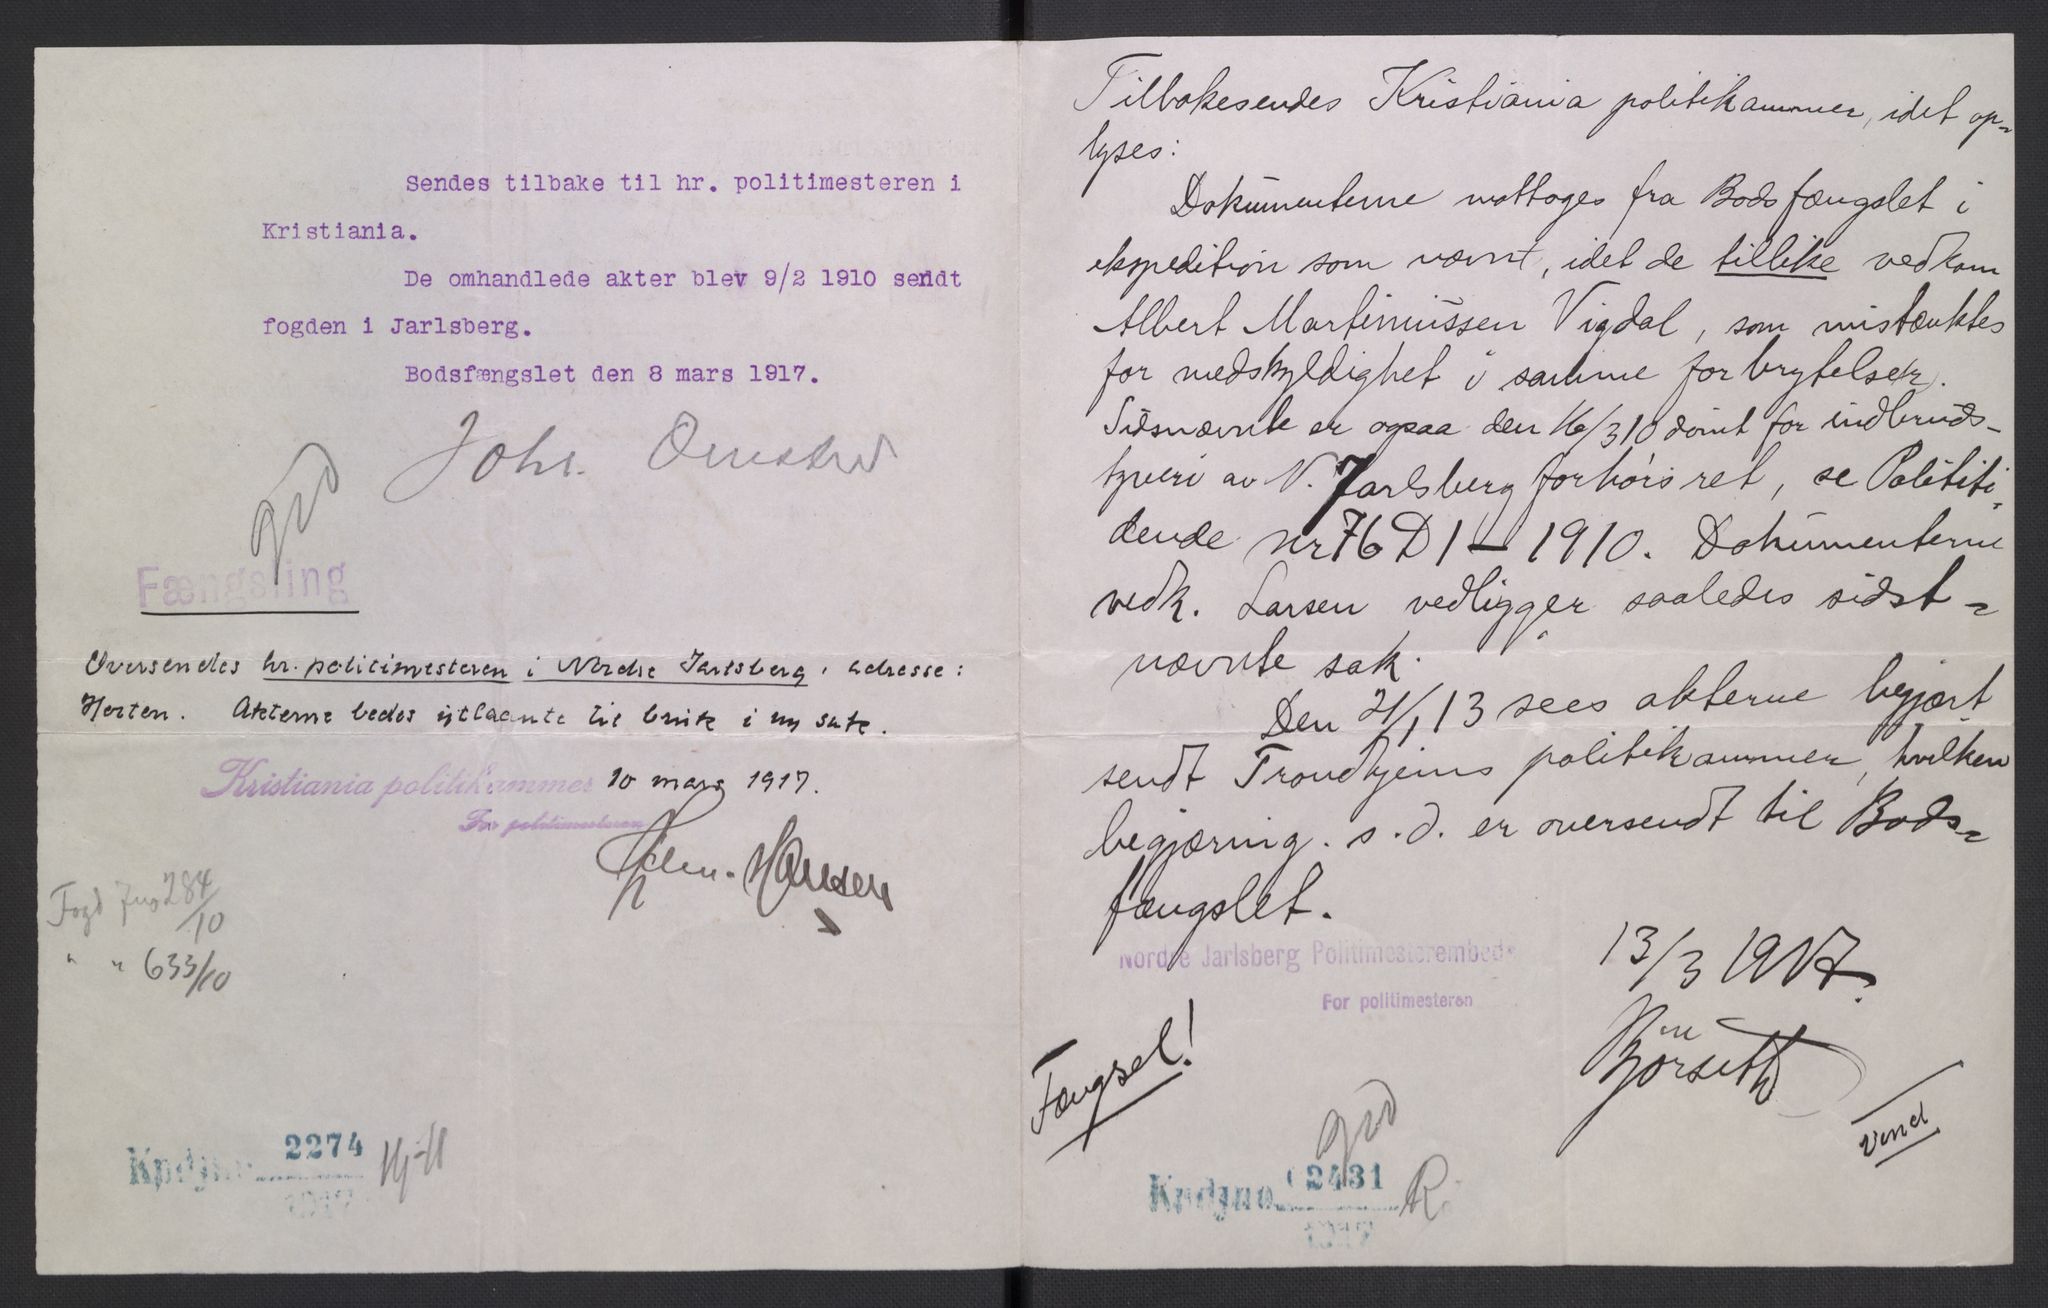 Sendes tilbake til hr. politimesteren i
Kristiania.
De omhandlede akter blev 9/2 1910 sendt
fogden i Jarlsberg.
Bodsfængslet den 8 mars 1917.
Joh.
Fængsling
Oversendes hr. politimesteren i Nordre Jarlsberg, adresse:
Horten. Akterne bedes utlaante til bruk i ny sak.
Kristiania politikammer 10 mars 1917.
For politimesteren
Hansen
Fogd Jno 284/10
" " 633/10
Kpdjno 2274
1917
Tilbakesendes Kristiania politikammer, idet op-
lyses:
Dokumenterne mottoges fra Bodsfængslet i
ekspedition som nævnt, idet de tillike vedkom
Albert Martinussen Vigdal, som mistænktes
for medskyldighet i samme forbrytelse(r).
Sidsnævnte er ogsaa den 16/3 10 dømt for indbruds-
tyveri av N. Jarlsberg forhørsret, se Polititi-
dende nr 76 D 1 - 1910. Dokumenterne
vedk. Larsen vedligger saaledes sidst-
nævnte sak.
Den 21/1 13 sees akterne begjært
sendt Trondhjems politikammer, hvilken
begjæring s. d. er oversendt til Bods-
fængslet.
Nordre Jarlsberg Politimesterembede
13/3 1917.
For politimesteren
Bjørseth
Fængsel!
Vend
Kpdjno. 2431
1917